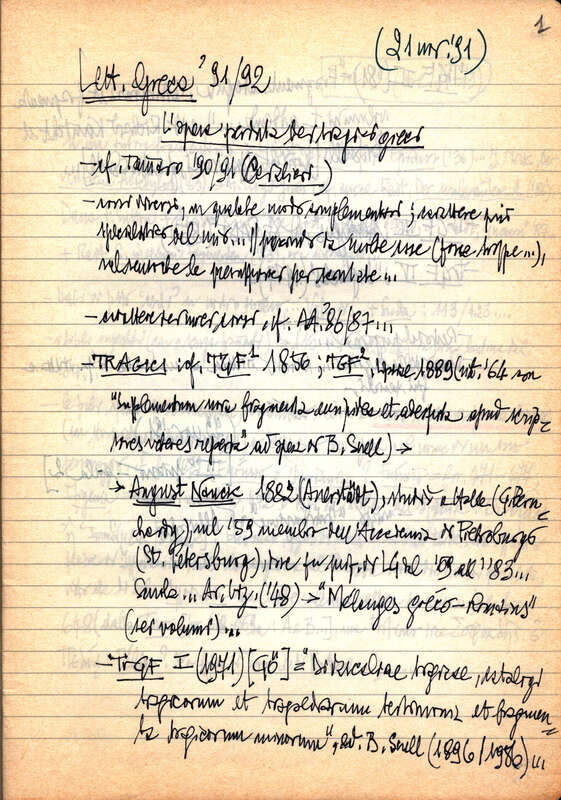 1
(21 nov. '91)
Lett. Greca '91/92
L'opera perduta dei tragici greci
– cf. Tamaro '90/91 (Corsliori)
– corsi diversi, in qualche modo complementari; carattere più
specialistico del mio...
salvaguarda le
– carattere dei miei corsi, cf. AA. '86/87...
– TRAGICI: cf. TGF¹ 1856; TGF², Lipsiae 1889 (rist. '64 con
"Supplementum nova fragmenta euripidea et adespota apud scrip=
tores veteres reperta" ad opera di B. Snell) →
→ August Nauck 1822 (Auerstädt), studia a Halle (G. Bern=
hardy), nel '59 membro dell'Accademia di Pietroburgo
(St. Petersburg), dove fu prof. di L. G. dal '69 all' '83...
Scuola... Ar. Byz. ('48) → "Mélanges gréco-romains"
(sei volumi)...
– TrGF I (1971) [Gö] = "Didascaliae tragicae, catalogi
tragicorum et tragoediarum testimonia et fragmen=
ta tragicorum minorum", ed. B. Snell (1896/1986)...